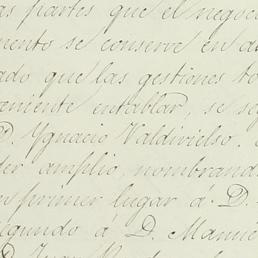 as partes que el negoc
mento se conserve en a
ado que las gestiones to
amente entablar, se se
D. Ygnacio Valdivielso.
der amplio, nombrand
n primer lugar á D.
segundo á D. Manue